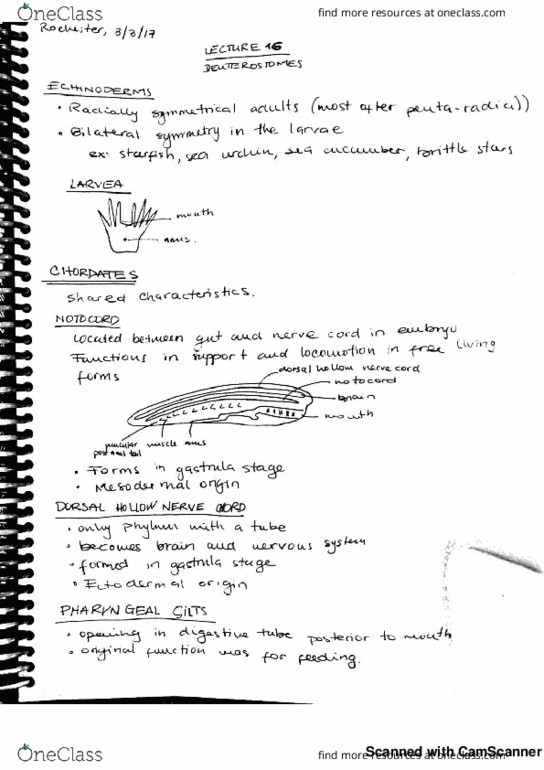 OneClass
find more resources at oneclass.com
Rochester, 3/3/17
LECTURE 16
DEUTEROSTOMES
ECHINODERMS
• Radially symmetrical adults (most often penta-radial)
• Bilateral symmetry in the larvae
ex: starfish, sea urchin, sea cucumber, brittle stars
LARVEA
mouth
anus.
CHORDATES
shared characteristics.
NOTOCORD
Located between gut and nerve cord in embryo
Functions in support and locomotion in free living
forms
dorsal hollow nerve cord
notocord
brain
mouth
muscular muscle anus
post anal tail
• Forms in gastrula stage
• Mesodermal origin
DORSAL HOLLOW NERVE CORD
• only phylum with a tube
• becomes brain and nervous system
• formed in gastrula stage
• Ectodermal origin
PHARYNGEAL GILTS
• opening in digestive tube posterior to mouth
• original function was for feeding.
OneClass
find more resources at oneclass.com
Scanned with CamScanner